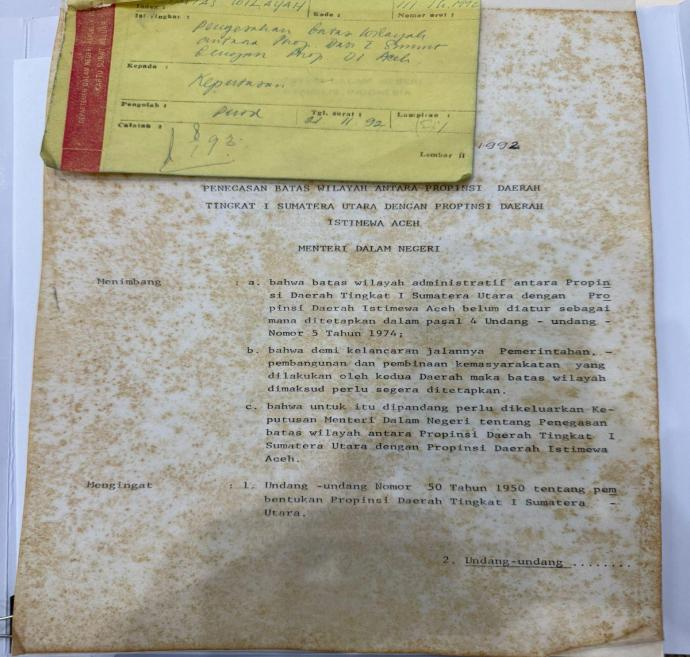 DEPARTEMEN DALAM NEGERI
KARTU SURAT KELUAR
Indeks : BATAS WILAYAH
Kode :
Nomor urut :
Isi ringkas :
Penegasan Batas Wilayah
antara Prop. Dati I Sumut
dengan Prop. DI Aceh
Kepada :
Keputusan
Pengolah :
Tgl. surat :
11-92
Lampiran :
Catatan :
Lembar II
1992
PENEGASAN BATAS WILAYAH ANTARA PROPINSI DAERAH
TINGKAT I SUMATERA UTARA DENGAN PROPINSI DAERAH
ISTIMEWA ACEH
MENTERI DALAM NEGERI
Menimbang : a. bahwa batas wilayah administratif antara Propin
si Daerah Tingkat I Sumatera Utara dengan Pro
pinsi Daerah Istimewa Aceh belum diatur sebagai
mana ditetapkan dalam pasal 4 Undang - undang -
Nomor 5 Tahun 1974;
b. bahwa demi kelancaran jalannya Pemerintahan, -
pembangunan dan pembinaan kemasyarakatan yang
dilakukan oleh kedua Daerah maka batas wilayah
dimaksud perlu segera ditetapkan.
c. bahwa untuk itu dipandang perlu dikeluarkan Ke-
putusan Menteri Dalam Negeri tentang Penegasan
batas wilayah antara Propinsi Daerah Tingkat I
Sumatera Utara dengan Propinsi Daerah Istimewa
Aceh.
Mengingat : 1. Undang -undang Nomor 50 Tahun 1950 tentang pem
bentukan Propinsi Daerah Tingkat I Sumatera -
Utara.
2. Undang-undang ........